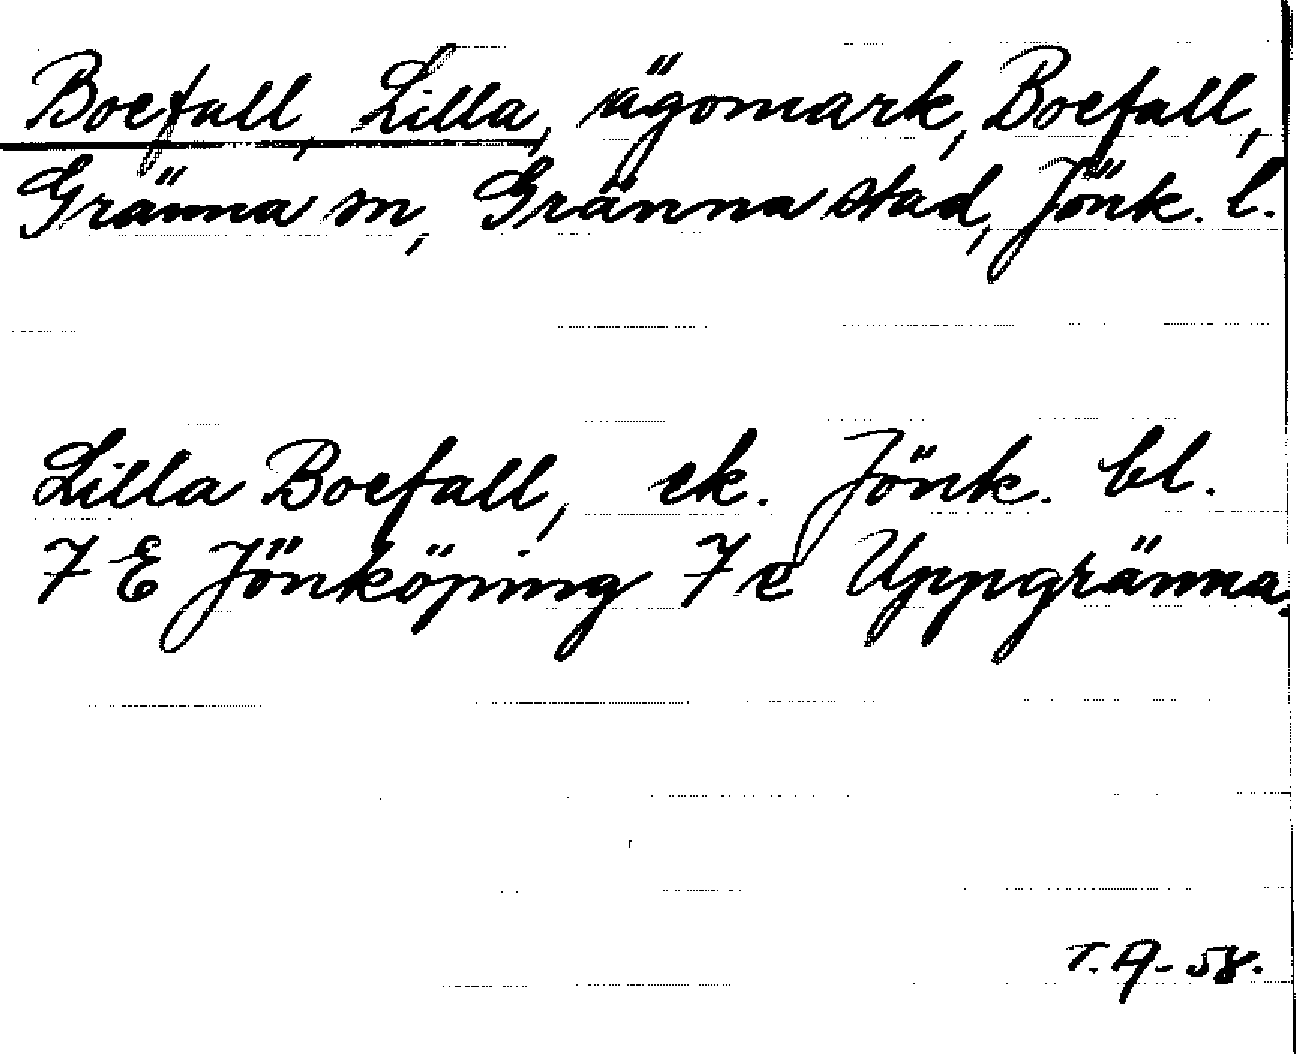 Boefall, Lilla, ägomark, Boefall,
Gränna sn, Gränna stad, Jönk. l.
Lilla Boefall, ek. Jönk. bl.
7 E Jönköping 7 e Uppgränna.
T.A-58.